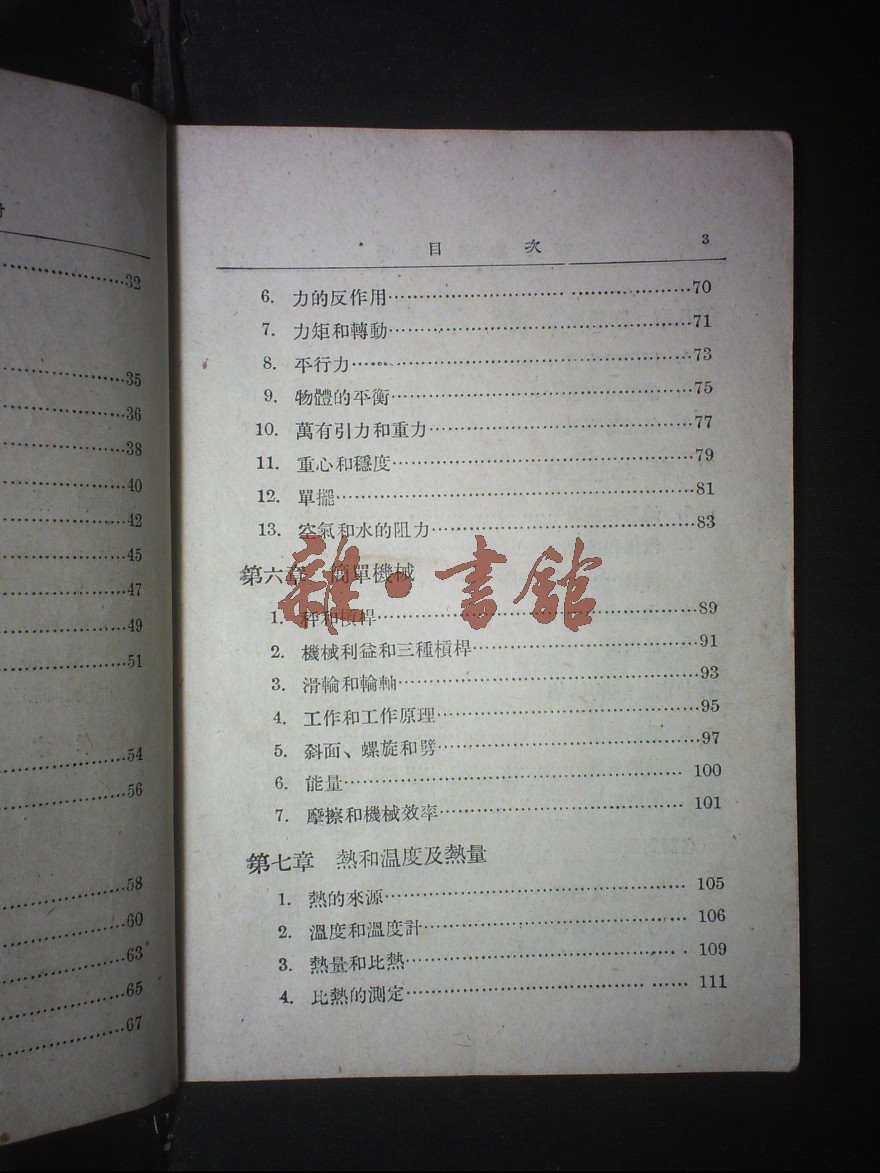 32
35
36
38
40
42
45
47
49
51
54
56
58
60
63
65
67
目 次 3
6. 力的反作用……70
7. 力矩和轉動……71
8. 平行力……73
9. 物體的平衡……75
10. 萬有引力和重力……77
11. 重心和穩度……79
12. 單擺……81
13. 空氣和水的阻力……83
第六章 簡單機械
1. 秤和槓桿……89
2. 機械利益和三種槓桿……91
3. 滑輪和輪軸……93
4. 工作和工作原理……95
5. 斜面、螺旋和劈……97
6. 能量……100
7. 摩擦和機械效率……101
第七章 熱和温度及熱量
1. 熱的來源……105
2. 溫度和溫度計……106
3. 熱量和比熱……109
4. 比熱的測定……111
雜·書館